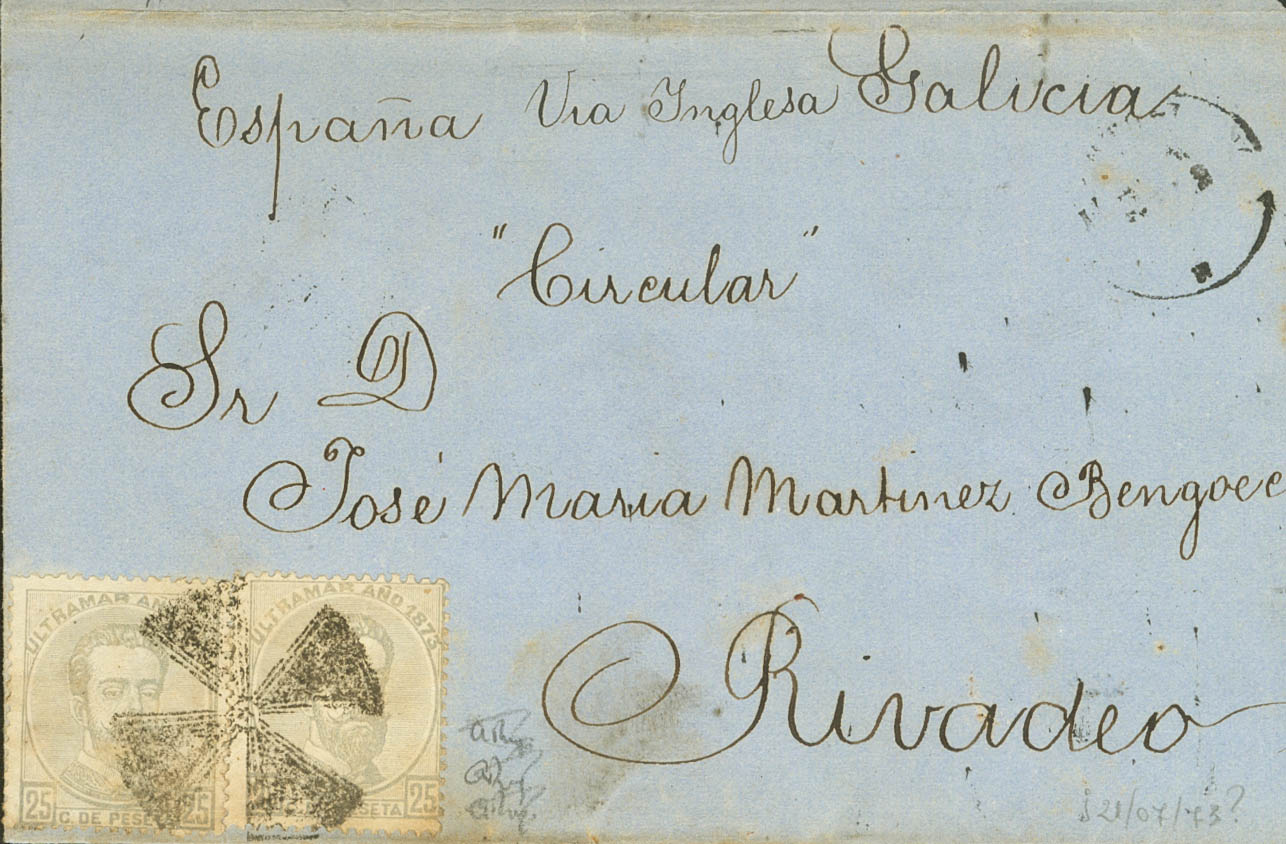 España Via Inglesa Galicia
"Circular"
Sr D
José Maria Martinez Bengoec
Rivadeo
ULTRAMAR AÑ
25 C. DE PESE 25
ULTRAMAR AÑO 1873
PESETA 25
21/07/73?